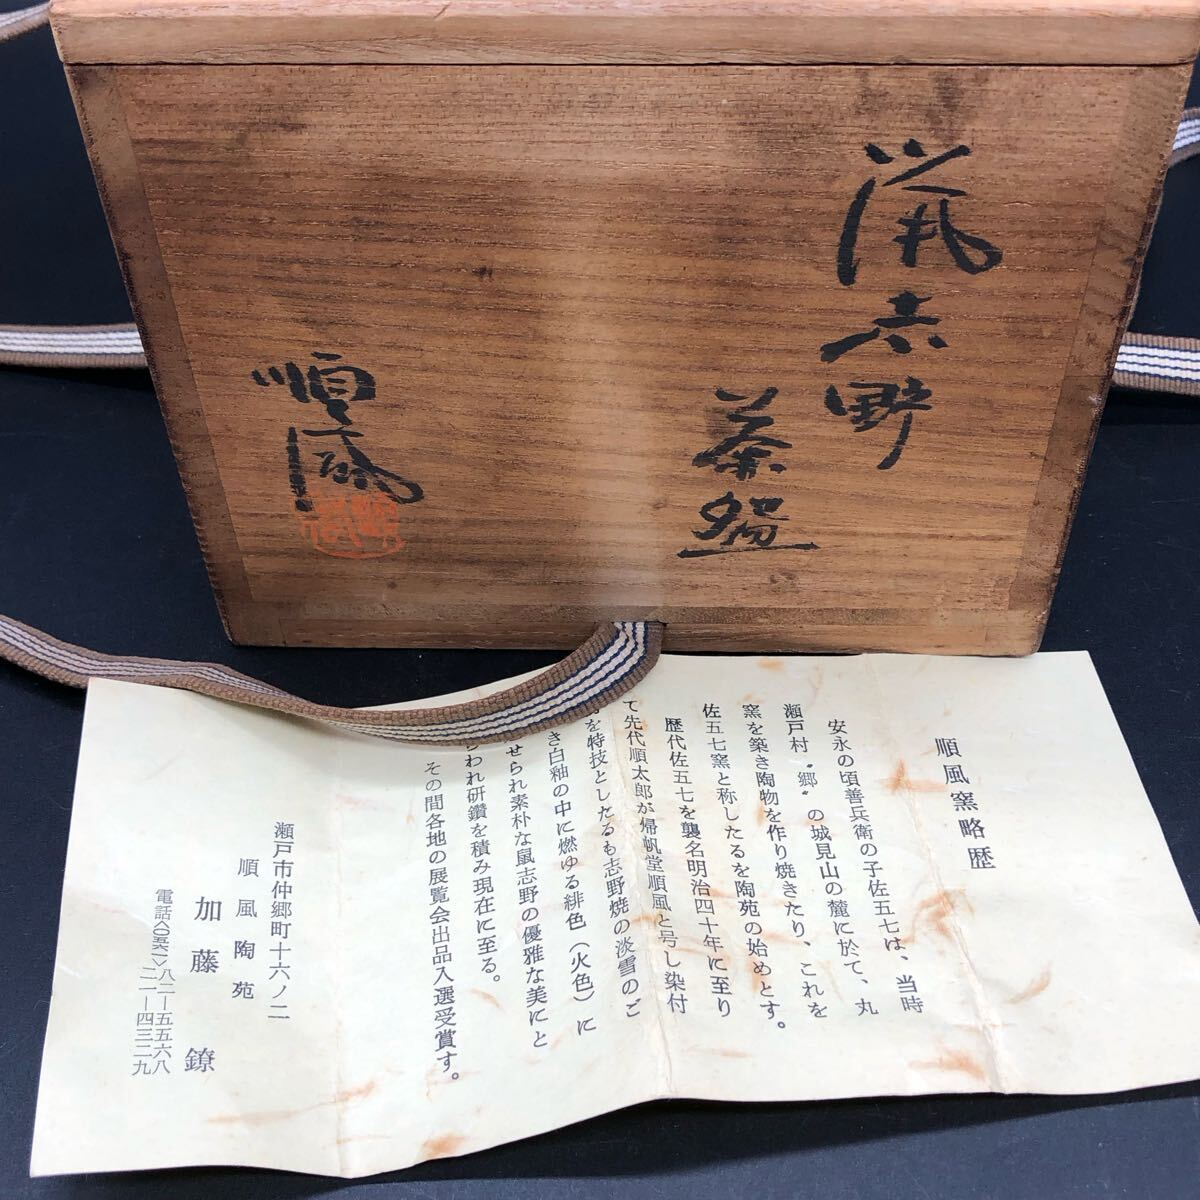 鼠志野
茶盌
順風
順風窯略歴
安永の頃善兵衛の子佐五七は、当時
瀬戸村〝郷〟の城見山の麓に於て、丸
窯を築き陶物を作り焼きたり、これを
佐五七窯と称したるを陶苑の始めとす。
歴代佐五七を襲名明治四十年に至り
て先代順太郎が帰帆堂順風と号し染付
を特技としたるも志野焼の淡雪のご
き白釉の中に燃ゆる緋色(火色)に
せられ素朴な鼠志野の優雅な美にと
らわれ研鑽を積み現在に至る。
その間各地の展覧会出品入選受賞す。
瀬戸市仲郷町十六ノ二
順風陶苑
加藤 鐐
電話〈〇五六一〉八二―五五六八
二一―四三二九